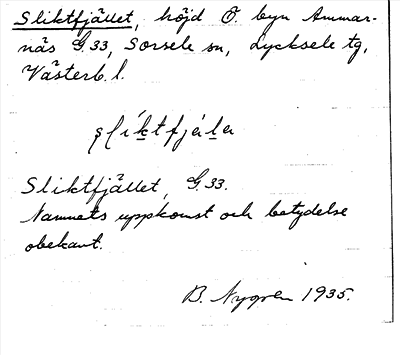 Sliktfjället, höjd Ö. byn Ammar-
näs G 33, Sorsele sn, Lycksele tg,
Västerb. l.
Sliktfjället, G 33.
Namnets uppkomst och betydelse
obekant.
B. Nygren 1935.